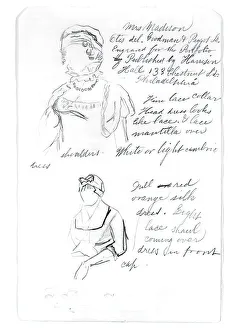 Mrs Madison
Otis del, Goodman & Piggot Sc
Engraved for the Portfolio
by Published by Harrison
Hall 133 Chestnut St.
Philadelphia
Fine lace collar
Head dress looks
like lace, & lace
mantilla over
shoulders. White or light cambric
dress
Dull red
orange silk
dress. Beige
lace shawl
coming over
dress in front
cap.